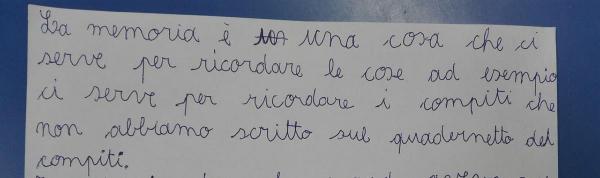 La memoria è una cosa che ci
serve per ricordare le cose ad esempio
ci serve per ricordare i compiti che
non abbiamo scritto sul quadernetto dei
compiti.